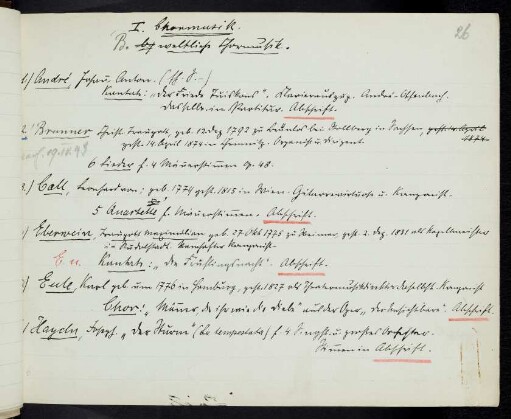 26
I. Chormusik.
B. weltliche Chormusik.
1) André, Johann Anton. (
Kantate: "Der Friede Tuiskons". Klavierauszug. André-Offenbach.
Dasselbe in Partitur. Abschrift.
2) Brunner, Christ. Traugott, geb. 12. Dez. 1792 zu Brünlos bei Stollberg in Sachsen,
gest. 14. April 1874 in Chemnitz. Organist und Dirigent.
6 Lieder f. 4 Männerstimmen Op. 48.
3) Call, Leonhard von: geb. 1774 gest. 1815 in Wien. Gitarrevirtuose u. Komponist.
5 Quartette f. Männerstimmen. Abschrift.
) Eberwein, Traugott Maximilian geb. 27. Okt 1775 zu Weimar, gest. 2. Dez. 1831 als Kapellmeister
in Rudolstadt. Komponist
Kantate: "Die Frühlingsnacht". Abschrift.
) Eule, Karl geb. um 1776 in Hamburg, gest. 1827 als Theatermusikdirektor daselbst. Komponist
Chor: "Männer, die ihr wie die" aus der Oper "der Unsichtbare". Abschrift.
) Haydn, Joseph "der Sturm" (La tempesta) f. 4 Singst. u. großes Orchester
Stimmen in Abschrift.